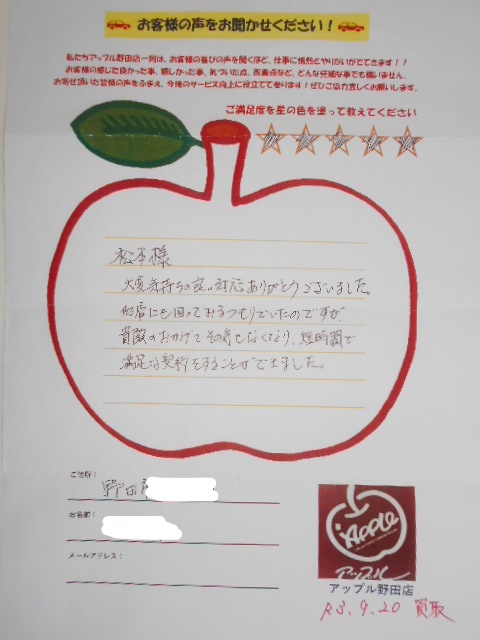 お客様の声をお聞かせください！
私たちアップル野田店一同は、お客様の喜びの声を聞くほど、仕事に情熱とやりがいがでてきます！！
お客様の感じた良かった事、嬉しかった事、気づいた点、改善点など、どんな些細な事でも構いません、
お寄せ頂いた皆様の声をふまえ、今後のサービス向上に役立てて参ります！ぜひご協力宜しくお願いします。
ご満足度を星の色を塗って教えてください
松本様
大変気持ちの良い対応ありがとうございました。
何店にも回っておるつもりでいたのですが
貴殿のおかげでその気もなくなり、短時間で
満足な契約をすることができました。
ご住所：
野田
お名前：
メールアドレス：
Apple
アップル
アップル野田店
R3.9.20 買取